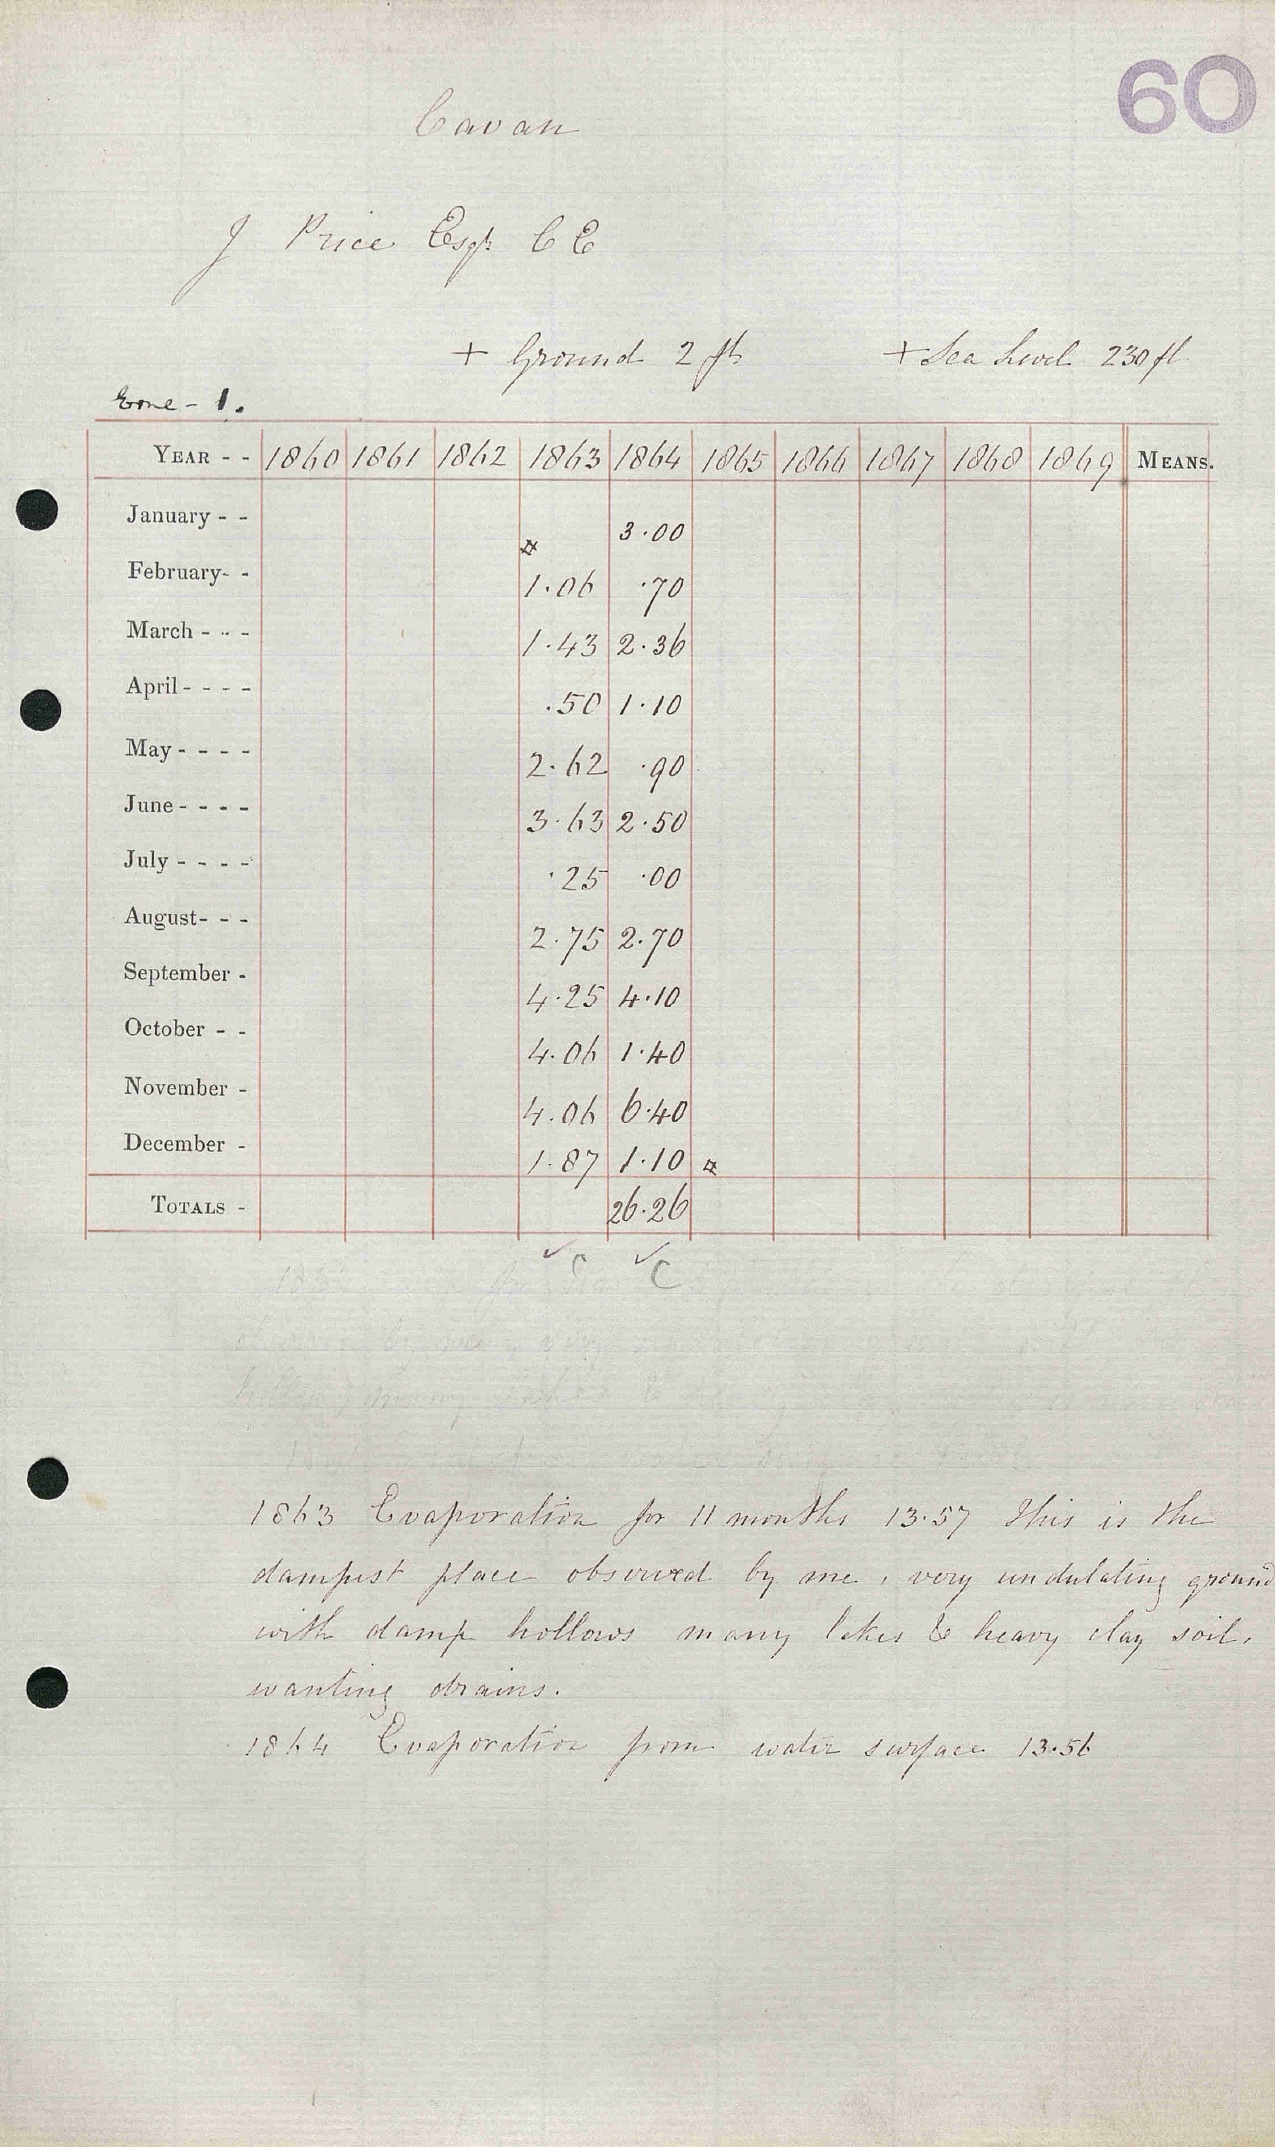 60
Cavan
J Price Esqr C E
+ Ground 2 ft + Sea Level 230 ft
1.
YEAR - - 1860 1861 1862 1863 1864 1865 1866 1867 1868 1869 MEANS.
January - - 3.00
February- - ¤ 1.06 .70
March - - - 1.43 2.36
April - - - - .50 1.10
May - - - - 2.62 .90
June - - - - 3.63 2.50
July - - - - .25 .00
August- - - 2.75 2.70
September - 4.25 4.10
October - - 4.06 1.40
November - 4.06 6.40
December - 1.87 1.10 ¤
TOTALS - 26.26
✓ C ✓ C
1863 Evaporation for 11 months 13.57 This is the
dampest place observed by me, very undulating ground
with damp hollows many lakes & heavy clay soil,
wanting drains.
1864 Evaporation from water surface 13.56